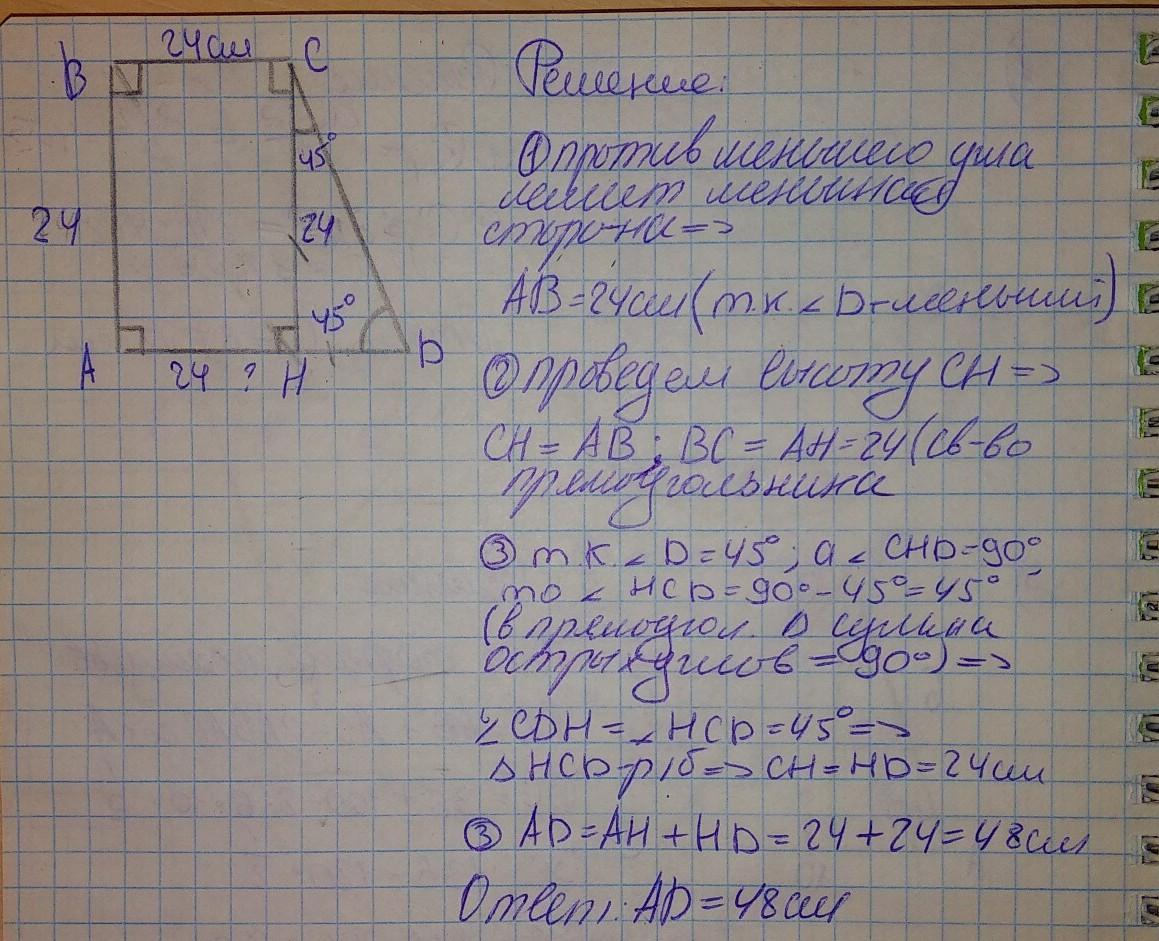 24см
B
C
45°
24
24
45°
A
24 ?
H
D
Решение:
① против меньшего угла
лежит меньшая
сторо-на=>
AB=24см(т.к. ∠D-меньший)
② проведем высоту CH=>
CH = AB; BC = AH=24(св-во
прямоугольника
③ т.к ∠D=45°; а ∠CHD=90°,
то ∠HCD=90°-45°=45°
(в прямоугол. ∆ сумма
острых углов = 90°)=>
∠CDH=∠HCD=45°=>
∆HCD-р/б=>CH=HD=24см
③ AD=AH+HD=24+24=48см
Ответ: AD=48см